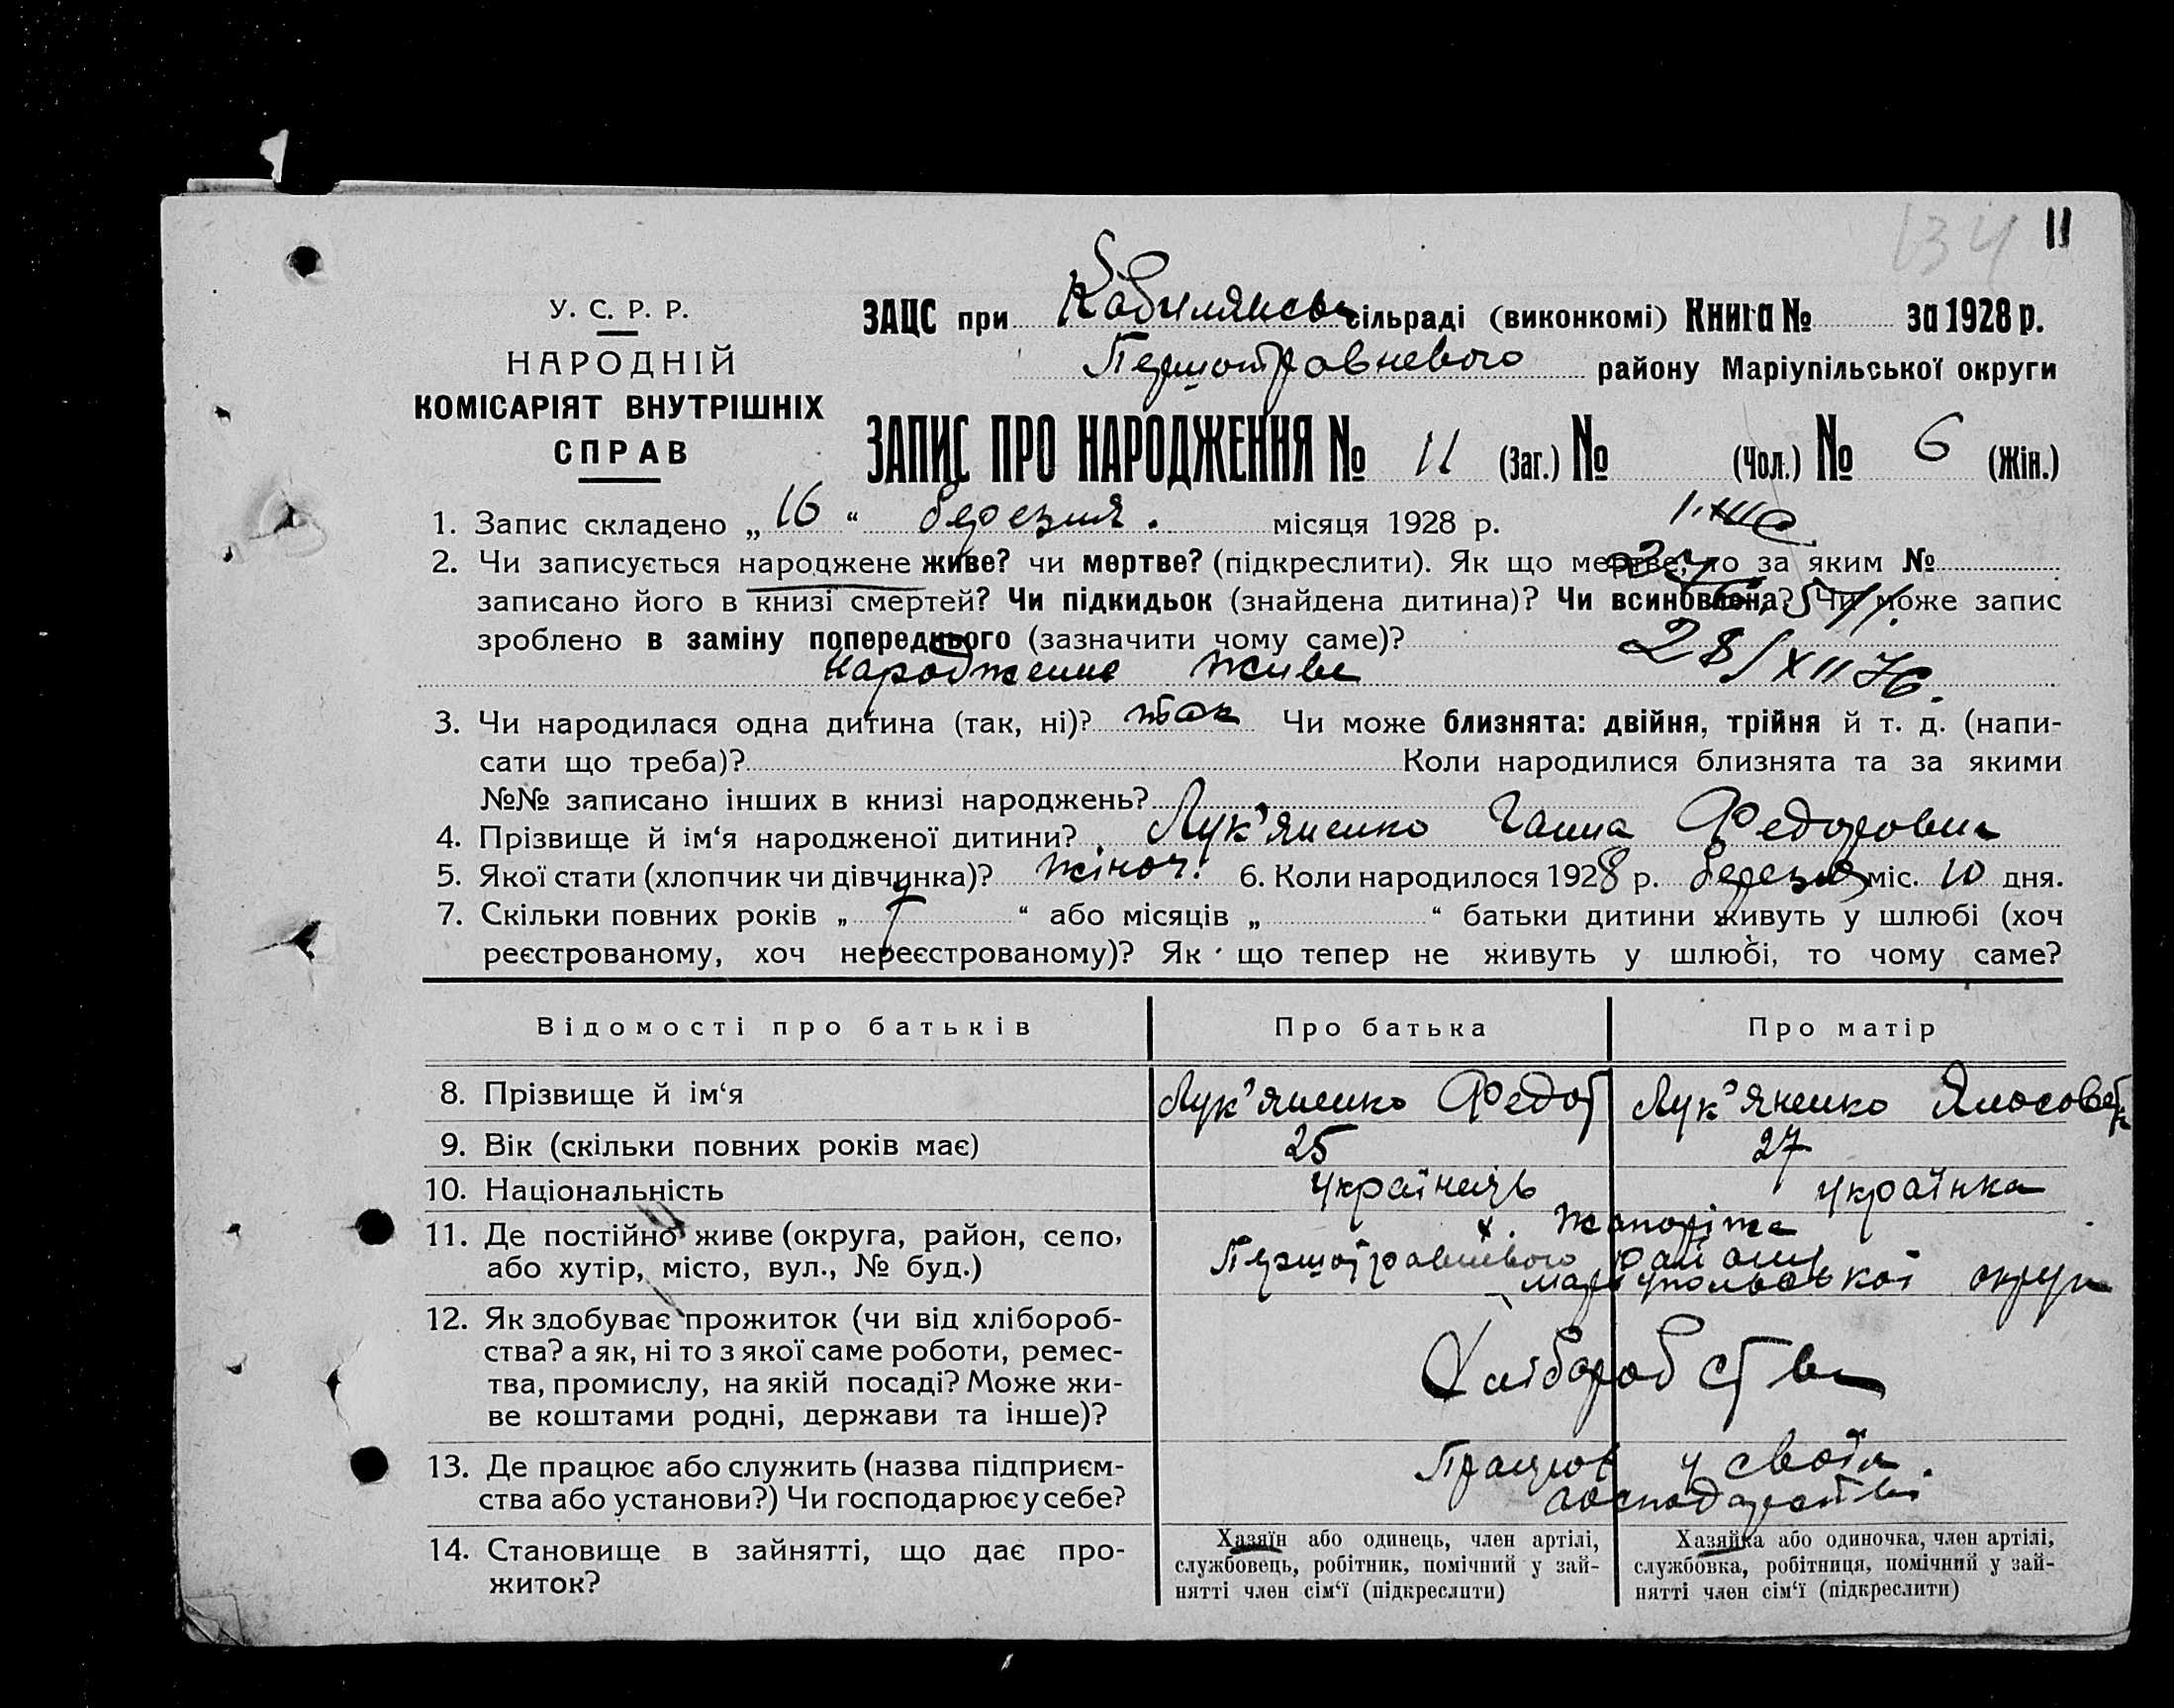 134 11
У. С. Р. Р.
НАРОДНІЙ
КОМІСАРІЯТ ВНУТРІШНІХ
СПРАВ
ЗАЦС при Кобилянськ сільраді (виконкомі) Книга № за 1928 р.
Першотравневого району Маріупільської округи
ЗАПИС ПРО НАРОДЖЕННЯ № 11 (Заг.) № (Чол.) № 6 (Жін.)
1. Запис складено „ 16 “ березня. місяця 1928 р.
2. Чи записується народжене живе? чи мертве? (підкреслити). Як що мертве, то за яким №
записано його в книзі смертей? Чи підкидьок (знайдена дитина)? Чи всиновлена? Чи може запис
зроблено в заміну попереднього (зазначити чому саме)?
народжене живе 28/XII 76.
3. Чи народилася одна дитина (так, ні)? так Чи може близнята: двійня, трійня й т. д. (напи-
сати що треба)? Коли народилися близнята та за якими
№№ записано інших в книзі народжень?
4. Прізвище й ім‘я народженої дитини? Лук’яненко Ганна Федоровна
5. Якої стати (хлопчик чи дівчинка)? жіноч. 6. Коли народилося 1928 р. березня міс. 10 дня.
7. Скільки повних років „ “ або місяців „ “ батьки дитини живуть у шлюбі (хоч
реєстрованому, хоч нереєстрованому)? Як що тепер не живуть у шлюбі, то чому саме?
Відомості про батьків Про батька Про матір
8. Прізвище й ім‘я Лук’яненко Федот Лук’яненко
9. Вік (скільки повних років має) 25 27
10. Національність українець українка
11. Де постійно живе (округа, район, село, х.
або хутір, місто, вул., № буд.) Першотравневого району
маріупольської округи
12. Як здобуває прожиток (чи від хлібороб-
ства? а як, ні то з якої саме роботи, ремес-
тва, промислу, на якій посаді? Може жи- Хліборобства
ве коштами родні, держави та інше)?
13. Де працює або служить (назва підприєм- у своїм
ства або установи?) Чи господарює у себе? господарстві.
14. Становище в зайнятті, що дає про-
житок?
Хазяїн або одинець, член артілі,
службовець, робітник, помічний у зай-
нятті член сім‘ї (підкреслити)
Хазяйка або одиночка, член артілі,
службовка, робітниця, помічний у зай-
нятті член сім‘ї (підкреслити)